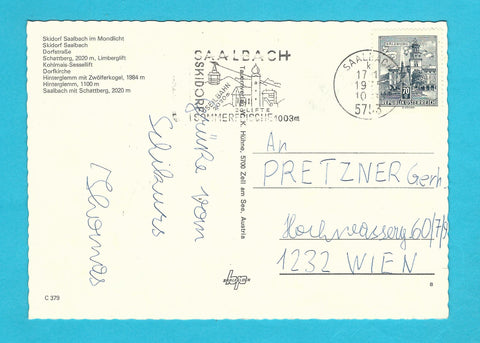 Skidorf Saalbach im Mondlicht
Skidorf Saalbach
Dorfstraße
Schattberg, 2020 m, Limberglift
Kohlmais-Sessellift
Dorfkirche
Hinterglemm mit Zwölferkogel, 1984 m
Hinterglemm, 1100 m
Saalbach mit Schattberg, 2020 m
SAALBACH
SKIDORF
SEILBAHN
LIFTE
SOMMERFRISCHE 1003m
SAALBACH
17
10
5753
70
REPUBLIK ÖSTERREICH
K. Hühne, 5700 Zell am See, Austria
Grüße vom
Schikurs
Thomas
An
PRETZNER Gerh.
Hochwasserg 60/7/9
1232 WIEN
C 379
8